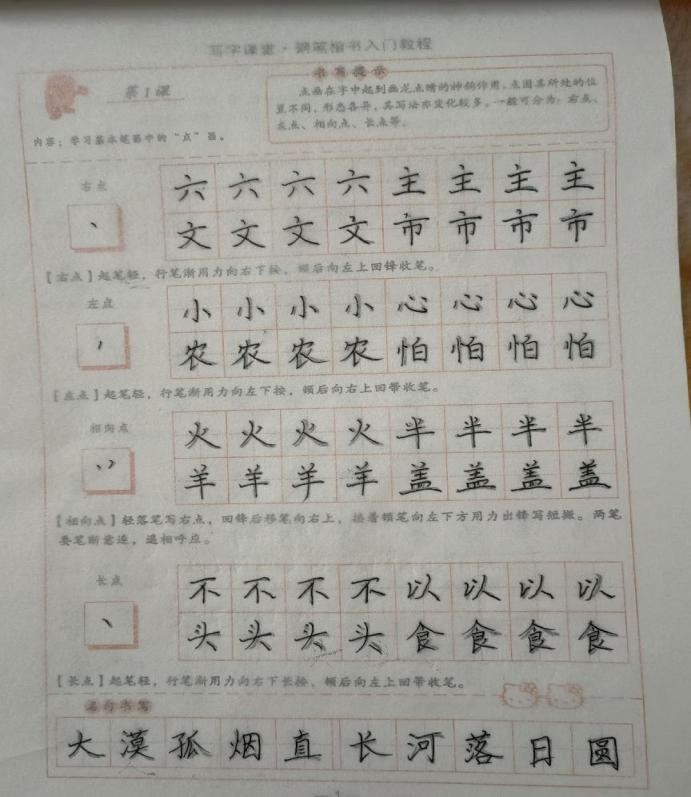 写字课堂·钢笔楷书入门教程
第1课
书写提示
点画在字中起到画龙点睛的神韵作用,点因其所处的位
置不同,形态各异,其写法亦变化较多。一般可分为:右点、
左点、相向点、长点等。
内容:学习基本笔画中的“点”画。
右点
六六六六主主主主
文文文文市市市市
【右点】起笔轻,行笔渐用力向右下按,顿后向左上回锋收笔。
左点
小小小小心心心心
农农农农怕怕怕怕
【左点】起笔轻,行笔渐用力向左下按,顿后向右上回带收笔。
相向点
火火火火半半半半
羊羊羊羊盖盖盖盖
【相向点】轻落笔写右点,回锋后移笔向右上,接着顿笔向左下方用力出锋写短撇。两笔
要笔断意连,遥相呼应。
长点
不不不不以以以以
头头头头食食食食
【长点】起笔轻,行笔渐用力向右下长按、顿后向左上回带收笔。
名句书写
大漠孤烟直长河落日圆
1